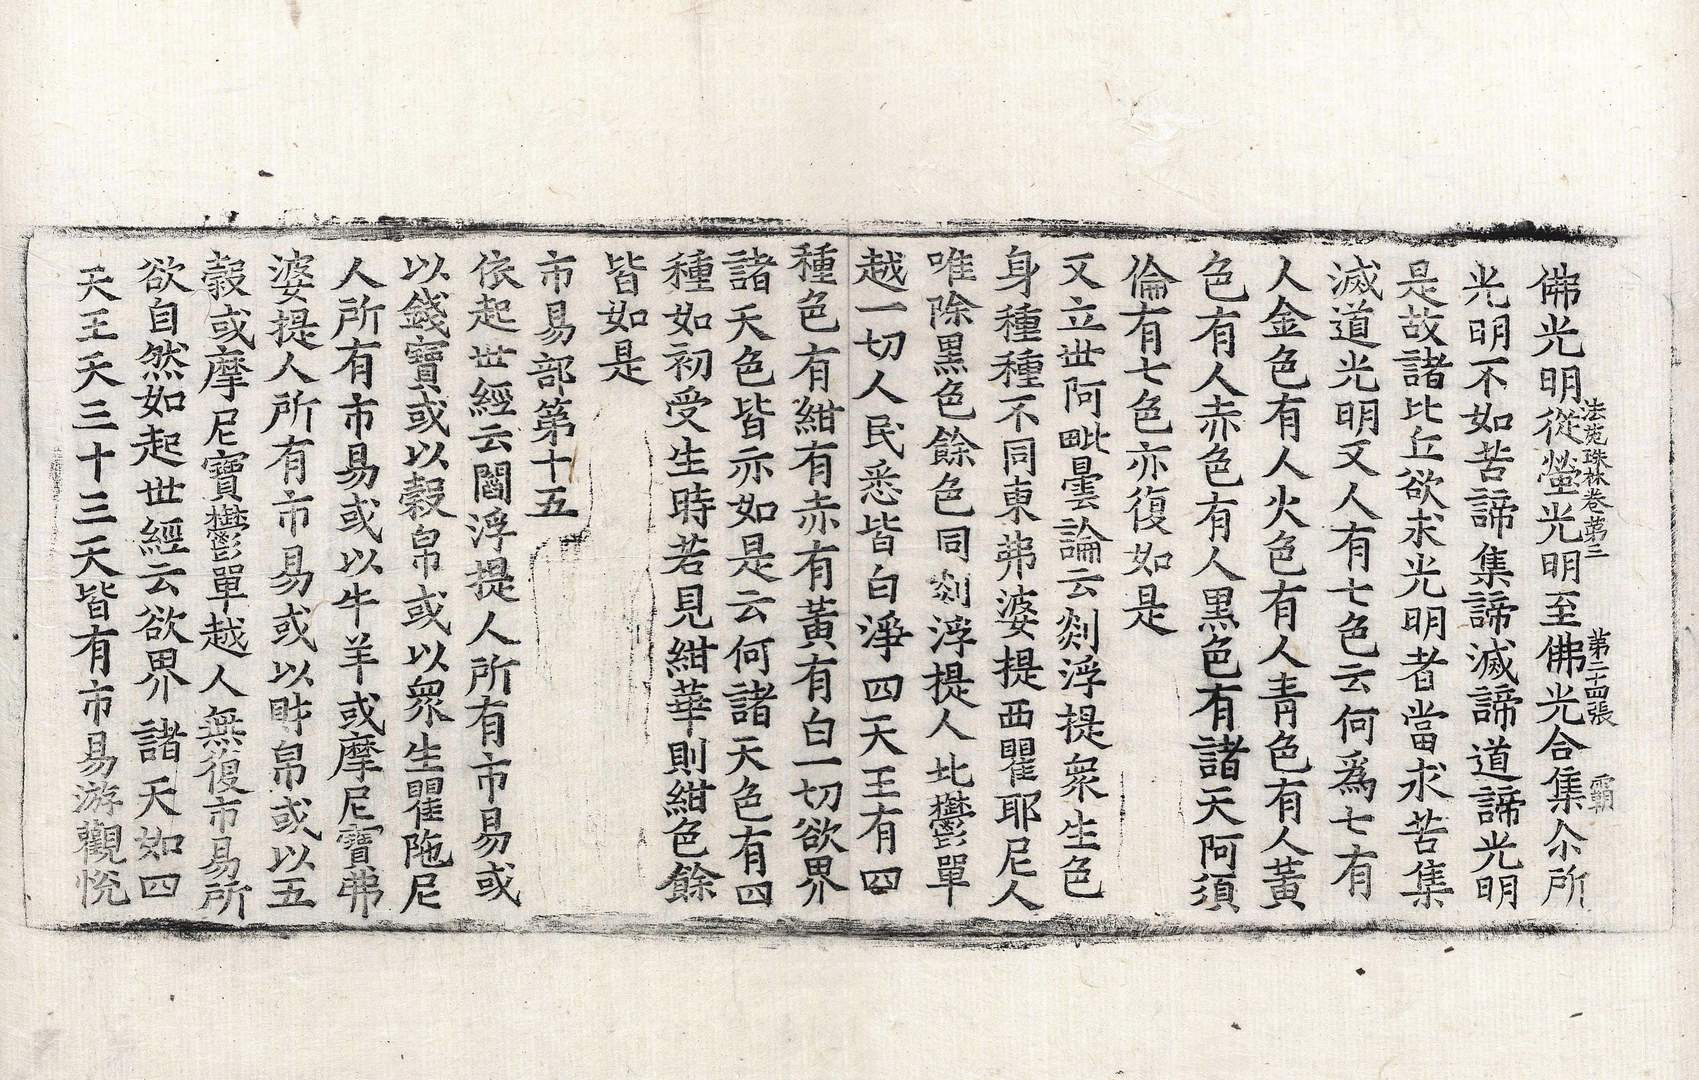 法苑珠林卷第三　第二十四張　霸
佛光明從螢光明至佛光合集尒所
光明不如苦諦集諦滅諦道諦光明
是故諸比丘欲求光明者當求苦集
滅道光明又人有七色云何爲七有
人金色有人火色有人青色有人黃
色有人赤色有人黑色有諸天阿須
倫有七色亦復如是
又立世阿毗曇論云剡浮提衆生色
身種種不同東弗婆提西瞿耶尼人
唯除黑色餘色同剡浮提人北鬱單
越一切人民悉皆白淨四天王有四
種色有紺有赤有黃有白一切欲界
諸天色皆亦如是云何諸天色有四
種如初受生時若見紺華則紺色餘
皆如是
市易部第十五
依起世經云閻浮提人所有市易或
以錢寶或以穀帛或以衆生瞿陁尼
人所有市易或以牛羊或摩尼寶弗
婆提人所有市易或以財帛或以五
穀或摩尼寶鬱單越人無復市易所
欲自然如起世經云欲界諸天如四
天王天三十三天皆有市易游觀悅